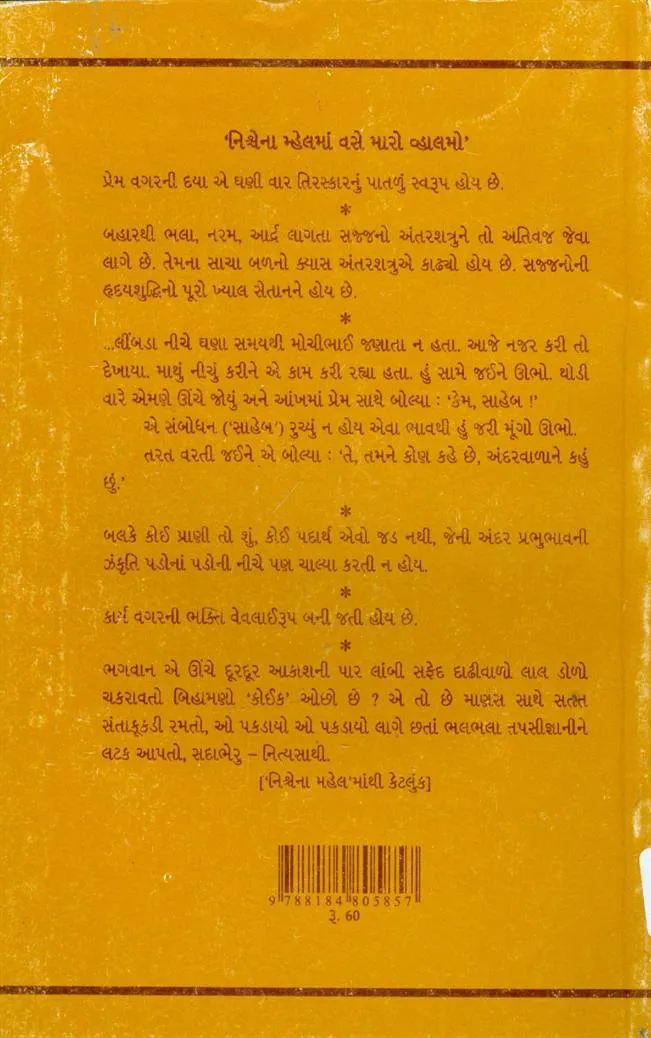 ‘નિશ્ચેના મ્હેલમાં વસે મારો વ્હાલમો’
પ્રેમ વગરની દયા એ ઘણી વાર તિરસ્કારનું પાતળું સ્વરૂપ હોય છે.
*
બહારથી ભલા, નરમ, આર્દ્ર લાગતા સજ્જનો અંતરશત્રુને તો અતિવજ જેવા
લાગે છે. તેમના સાચા બળનો ક્યાસ અંતરશત્રુએ કાઢ્યો હોય છે. સજ્જનોની
હૃદયશુદ્ધિનો પૂરો ખ્યાલ સેતાનને હોય છે.
*
...લીંબડા નીચે ઘણા સમયથી મોચીભાઈ જણાતા ન હતા. આજે નજર કરી તો
દેખાયા. માથું નીચું કરીને એ કામ કરી રહ્યા હતા. હું સામે જઈને ઊભો. થોડી
વારે એમણે ઊંચે જોયું અને આંખમાં પ્રેમ સાથે બોલ્યા : ‘કેમ, સાહેબ !’
એ સંબોધન (‘સાહેબ’) રુચ્યું ન હોય એવા ભાવથી હું જરી મૂંગો ઊભો.
તરત વરતી જઈને એ બોલ્યા : ‘તે, તમને કોણ કહે છે, અંદરવાળાને કહું
છું.’
*
બલકે કોઈ પ્રાણી તો શું, કોઈ પદાર્થ એવો જડ નથી, જેની અંદર પ્રભુભાવની
ઝંકૃતિ પડોનાં પડોની નીચે પણ ચાલ્યા કરતી ન હોય.
*
કાર્ય વગરની ભક્તિ વેવલાઈરૂપ બની જતી હોય છે.
*
ભગવાન એ ઊંચે દૂરદૂર આકાશની પાર લાંબી સફેદ દાઢીવાળો લાલ ડોળો
ચકરાવતો બિહામણો ‘કોઈક’ ઓછો છે ? એ તો છે માણસ સાથે સતત
સંતાકૂકડી રમતો, ઓ પકડાયો ઓ પકડાયો લાગે છતાં ભલભલા તપસીજ્ઞાનીને
લટક આપતો, સદાભેરુ – નિત્યસાથી.
[‘નિશ્ચેના મહેલ’માંથી કેટલુંક]
9 788184 805857
રૂ. 60